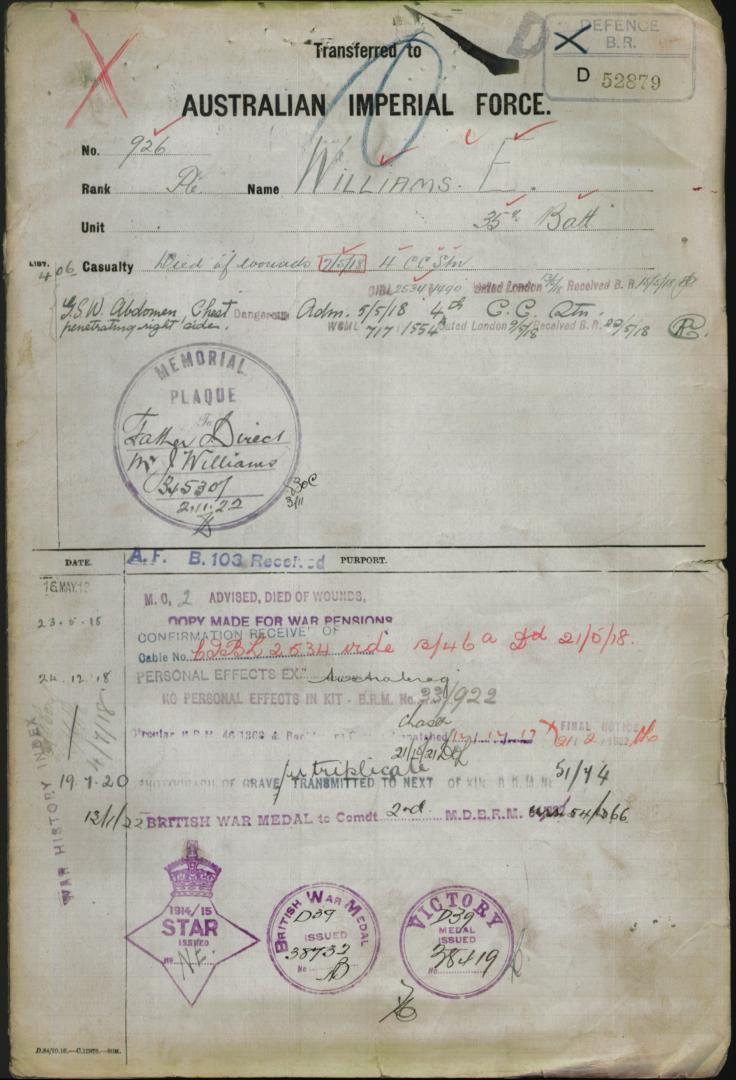 DEFENCE
B.R.
D 52879
Transferred to
AUSTRALIAN IMPERIAL FORCE.
No. 926
Rank Pte. Name WILLIAMS. E.
Unit 35th Batt
LIST.
406 Casualty Died of wounds 7/5/18 4 CC Stn
Dated London Received B. R.
G.S.W. Abdomen, Chest Dangerous Adm. 5/5/18 4th C.C. Stn.
penetrating right side. 717/1554 Dated London Received B. R. 22/5/18
MEMORIAL
PLAQUE
To
Father Direct
Mr J Williams
345301
2.11.22
3/11
DATE. A.F. B.103 Received PURPORT.
16 MAY 18
M.O. 2 ADVISED, DIED OF WOUNDS,
23.5.18 COPY MADE FOR WAR PENSIONS
CONFIRMATION RECEIVED OF
Cable No. 2534 vide 12/46a Dd 21/5/18.
24.12.18 PERSONAL EFFECTS EX
4/7/18 NO PERSONAL EFFECTS IN KIT - B.R.M. No. 33/922
Circular B.R.M. 46/1369 &
21/12/21
in triplicate
19.7.20 PHOTOGRAPH OF GRAVE TRANSMITTED TO NEXT OF KIN B.R.M. No 51/74
12/1/22 BRITISH WAR MEDAL to Comdt 2nd M.D.B.R.M. 54/866
WAR HISTORY INDEX
1914/15
STAR
ISSUED
No N.E.
BRITISH WAR MEDAL
D39
ISSUED
38732
No
VICTORY
D39
MEDAL
ISSUED
38419
No
D.84/10.16.—C.12976.—60M.